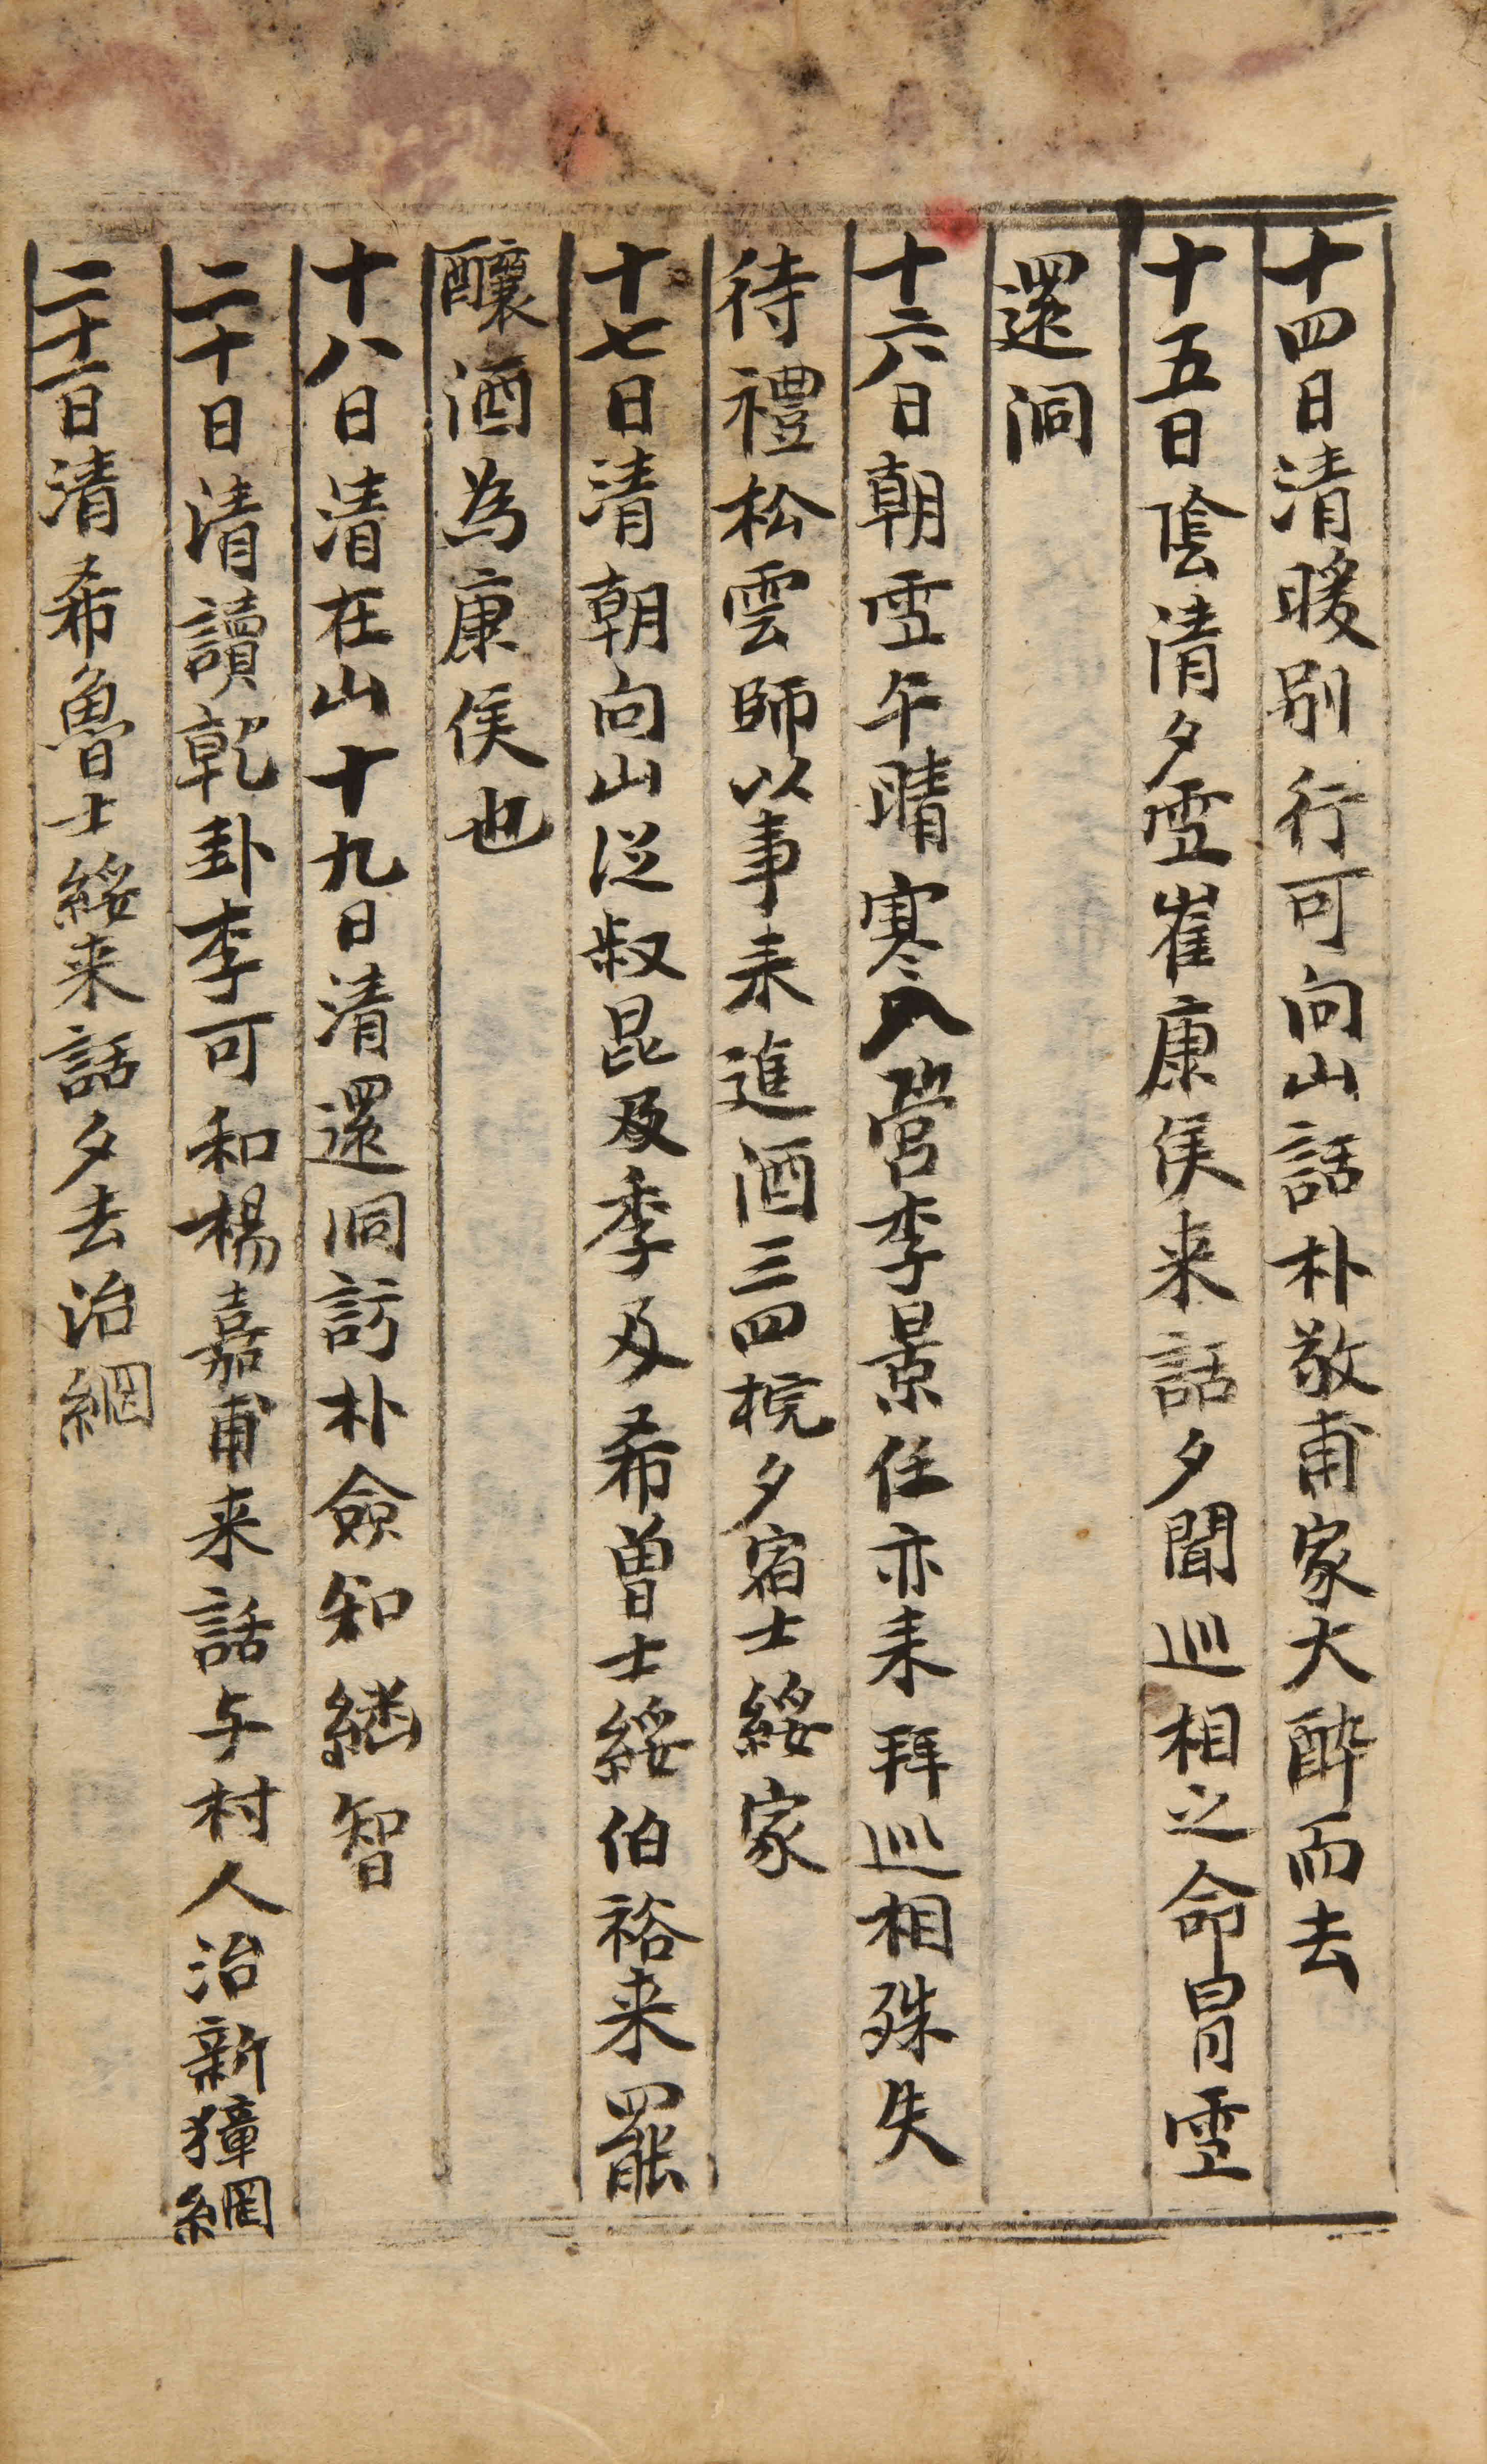 十四日清暖別行可向山話朴敬甫家大醉而去
十五日陰清夕雪崔康侯来話夕聞巡相之命冒雪
還洞
十六日朝雪午晴寒入營李景任亦来拜巡相殊失
待禮松雲師以事来進酒三四梡夕宿士綏家
十七日清朝向山從叔昆及季及希曽士綏伯裕来罷
釀酒為康侯也
十八日清在山十九日清還洞訪朴僉知継智
二十日清讀乾卦李可和楊嘉甫来話与村人治新獐網
二十一日清希魯士綏来話夕去治網